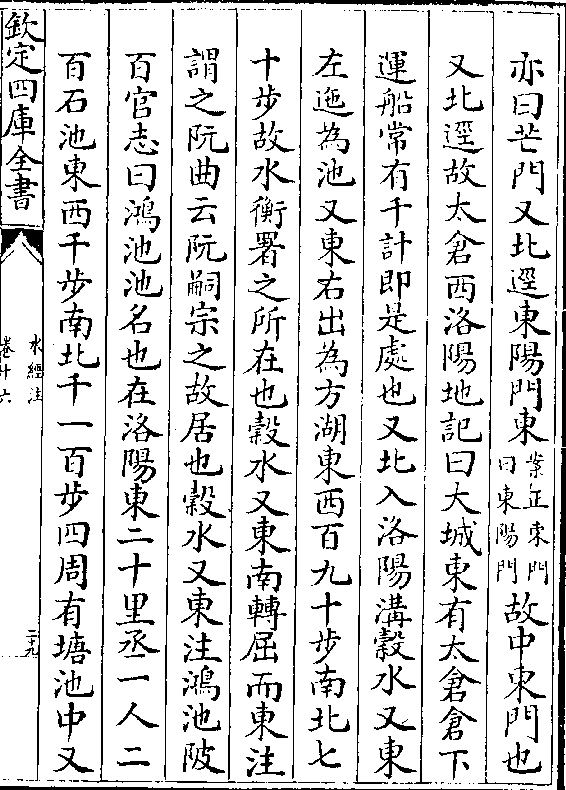 亦曰芒門又北逕東陽門東案正東門曰東陽門故中東門也
又北逕故太倉西洛陽地記曰大城東有太倉倉下
運船常有千計即是處也又北入洛陽溝穀水又東
左迤為池又東右出為方湖東西百九十步南北七
十步故水衡署之所在也穀水又東南轉屈而東注
謂之阮曲云阮嗣宗之故居也穀水又東注鴻池陂
百官志曰鴻池池名也在洛陽東二十里丞一人二
百石池東西千步南北千一百步四周有塘池中又
欽定四庫全書
水經注
卷十六
二十九